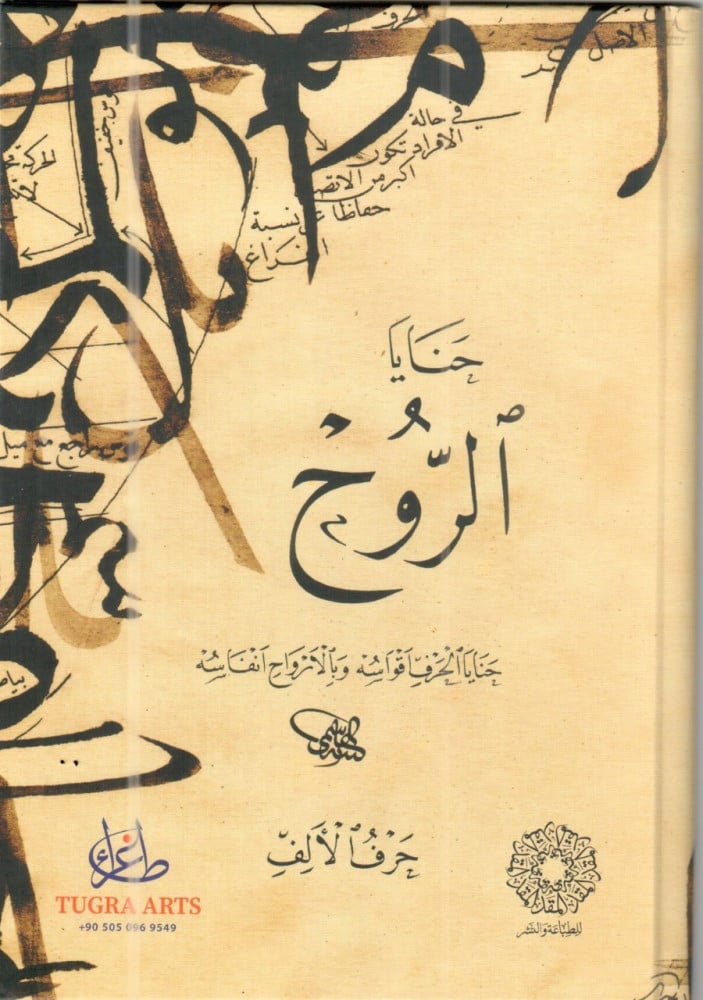 في حالة
الافراد تكون
اكبر من الاتصـ
حفاظا عن نسبة
الفراغ
حَنَايَا
ٱلرُّوحْ
حَنَايَا ٱلْحَرْفِ اَقْوَاسُه وَبِالْاَرْوَاحِ اَنْفَاسُه
حَرْفُ ٱلْأَلِفِّ
طغراء
TUGRA ARTS
+90 505 096 9549
للطِبَاعَة وَالنَشر